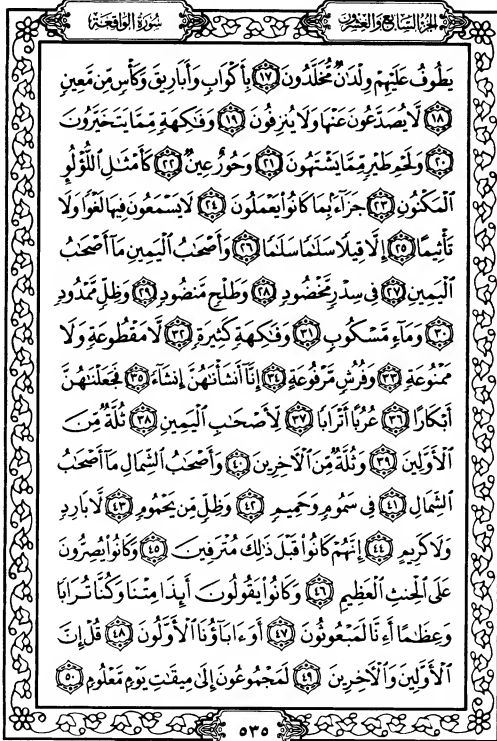 الجزء السابع والعشرون
سورة الواقعة
يَطُوفُ عَلَيْهِمْ وِلْدَٰنٌ مُّخَلَّدُونَ ۝١٧ بِأَكْوَابٍ وَأَبَارِيقَ وَكَأْسٍ مِّن مَّعِينٍ
۝١٨ لَّا يُصَدَّعُونَ عَنْهَا وَلَا يُنزِفُونَ ۝١٩ وَفَٰكِهَةٍ مِّمَّا يَتَخَيَّرُونَ
۝٢٠ وَلَحْمِ طَيْرٍ مِّمَّا يَشْتَهُونَ ۝٢١ وَحُورٌ عِينٌ ۝٢٢ كَأَمْثَٰلِ اللُّؤْلُؤِ
الْمَكْنُونِ ۝٢٣ جَزَآءً بِمَا كَانُوا۟ يَعْمَلُونَ ۝٢٤ لَا يَسْمَعُونَ فِيهَا لَغْوًا وَلَا
تَأْثِيمًا ۝٢٥ إِلَّا قِيلًا سَلَٰمًا سَلَٰمًا ۝٢٦ وَأَصْحَٰبُ الْيَمِينِ مَآ أَصْحَٰبُ
الْيَمِينِ ۝٢٧ فِى سِدْرٍ مَّخْضُودٍ ۝٢٨ وَطَلْحٍ مَّنضُودٍ ۝٢٩ وَظِلٍّ مَّمْدُودٍ
۝٣٠ وَمَآءٍ مَّسْكُوبٍ ۝٣١ وَفَٰكِهَةٍ كَثِيرَةٍ ۝٣٢ لَّا مَقْطُوعَةٍ وَلَا
مَمْنُوعَةٍ ۝٣٣ وَفُرُشٍ مَّرْفُوعَةٍ ۝٣٤ إِنَّآ أَنشَأْنَٰهُنَّ إِنشَآءً ۝٣٥ فَجَعَلْنَٰهُنَّ
أَبْكَارًا ۝٣٦ عُرُبًا أَتْرَابًا ۝٣٧ لِّأَصْحَٰبِ الْيَمِينِ ۝٣٨ ثُلَّةٌ مِّنَ
الْأَوَّلِينَ ۝٣٩ وَثُلَّةٌ مِّنَ الْءَاخِرِينَ ۝٤٠ وَأَصْحَٰبُ الشِّمَالِ مَآ أَصْحَٰبُ
الشِّمَالِ ۝٤١ فِى سَمُومٍ وَحَمِيمٍ ۝٤٢ وَظِلٍّ مِّن يَحْمُومٍ ۝٤٣ لَّا بَارِدٍ
وَلَا كَرِيمٍ ۝٤٤ إِنَّهُمْ كَانُوا۟ قَبْلَ ذَٰلِكَ مُتْرَفِينَ ۝٤٥ وَكَانُوا۟ يُصِرُّونَ
عَلَى الْحِنثِ الْعَظِيمِ ۝٤٦ وَكَانُوا۟ يَقُولُونَ أَئِذَا مِتْنَا وَكُنَّا تُرَابًا
وَعِظَٰمًا أَءِنَّا لَمَبْعُوثُونَ ۝٤٧ أَوَءَابَآؤُنَا الْأَوَّلُونَ ۝٤٨ قُلْ إِنَّ
الْأَوَّلِينَ وَالْءَاخِرِينَ ۝٤٩ لَمَجْمُوعُونَ إِلَىٰ مِيقَٰتِ يَوْمٍ مَّعْلُومٍ ۝٥٠
٥٣٥